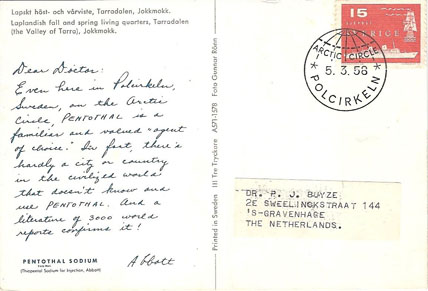 Lapskt höst- och vårviste, Tarradalen, Jokkmokk.
Laplandish fall and spring living quarters, Tarradalen
(the Valley of Tarra), Jokkmokk.
Dear Doctor:
Even here in Polcirkeln,
Sweden, on the Arctic
Circle, PENTOTHAL is a
familiar and valued "agent
of choice." In fact, there's
hardly a city or country
in the civilized world
that doesn't know and
use PENTOTHAL. And a
literature of 3000 world
reports confirms it!
Abbott
PENTOTHAL SODIUM
(Thiopental Sodium for Injection, Abbott)
Printed in Sweden III Tre Tryckare A571-1578 Foto Gunnar Rönn
15
SVERIGE
ARCTIC CIRCLE
5.3.58
* POLCIRKELN *
DR. P. J. BUYZE
2E SWEELINCKSTRAAT 144
'S-GRAVENHAGE
THE NETHERLANDS.